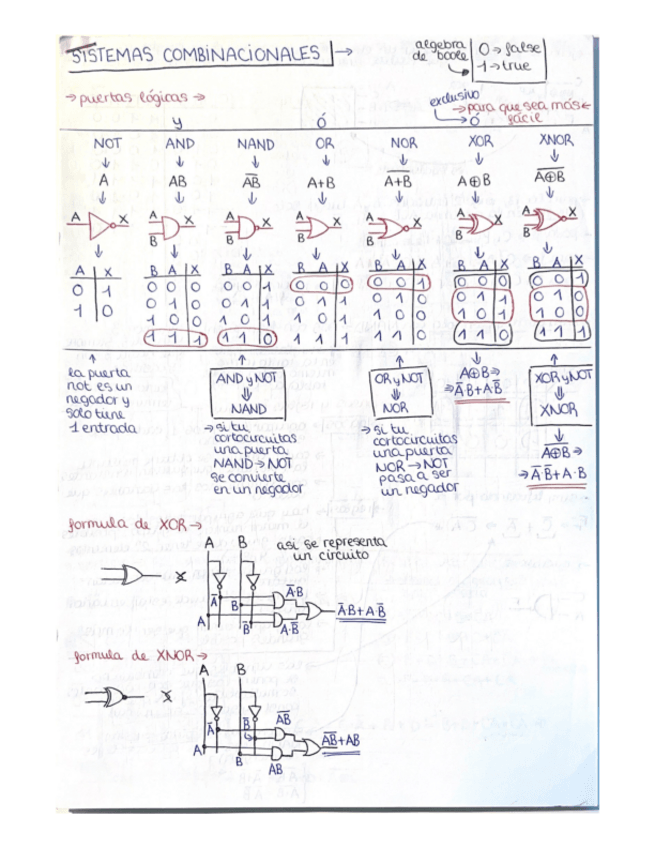 SISTEMAS COMBINACIONALES → algebra de boole 0→false
1→true
→puertas lógicas→
exclusivo →para que sea más fácil
y ó ó
NOT AND NAND OR NOR XOR XNOR
A AB A̅B̅ A+B A̅+̅B̅ A⊕B A̅⊕̅B̅
A X A B X A B X A B X A B X A B X A B X
A X B A X B A X B A X B A X B A X B A X
0 1 0 0 0 0 0 1 0 0 0 0 0 1 0 0 0 0 0 1
1 0 0 1 0 0 1 1 0 1 1 0 1 0 0 1 1 0 1 0
1 0 0 1 0 1 1 0 1 1 0 0 1 0 1 1 0 0
1 1 1 1 1 0 1 1 1 1 1 0 1 1 1 1 1 1
la puerta
not es un
negador y
solo tiene
1 entrada
AND y NOT
⇓
NAND
→si tu
cortocircuitas
una puerta
NAND→NOT
se convierte
en un negador
OR y NOT
⇓
NOR
→si tu
cortocircuitas
una puerta
NOR →NOT
pasa a ser
un negador
A⊕B→
→A̅B+AB̅
XOR y NOT
⇓
XNOR
A̅⊕̅B̅→
→A̅·B̅+A·B
formula de XOR→
A B
asi se representa
un circuito
A̅·B
A̅ B A̅·B+A·B̅
A B̅ A·B̅
formula de XNOR→
A B
A̅B̅
A̅ B̅ A̅B̅+AB
A B AB